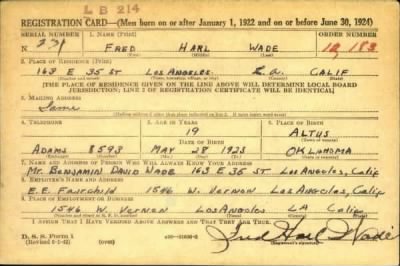 L B 214
REGISTRATION CARD—(Men born on or after January 1, 1922 and on or before June 30, 1924)
SERIAL NUMBER 1. NAME (Print) ORDER NUMBER
FRED HARL WADE 12,183
2. PLACE OF RESIDENCE (Print)
163 E 35 ST LOS ANGELES L.A. CALIF
(THE PLACE OF RESIDENCE GIVEN ON THE LINE ABOVE WILL DETERMINE LOCAL BOARD
JURISDICTION; LINE 2 OF REGISTRATION CERTIFICATE WILL BE IDENTICAL)
3. MAILING ADDRESS
Same
(Mailing address if other than place indicated on line 2. If same, insert word same)
4. TELEPHONE 5. AGE IN YEARS 6. PLACE OF BIRTH
19 ALTUS
DATE OF BIRTH
ADAMS 8593 MAY 28 1923 OKLAHOMA
7. NAME AND ADDRESS OF PERSON WHO WILL ALWAYS KNOW YOUR ADDRESS
Mr. BENJAMIN DAVID WADE 163 E 35 ST LOS ANGELES, Calif
8. EMPLOYER'S NAME AND ADDRESS
E.E. FAIRCHILD 1546 W. VERNON LOS ANGELES, Calif
9. PLACE OF EMPLOYMENT OR BUSINESS
1546 W. VERNON LOS ANGELES LA Calif
I AFFIRM THAT I HAVE VERIFIED ABOVE ANSWERS AND THAT THEY ARE TRUE.
D. S. S. Form 1
(Revised 6-1-42) (over)
Fred Harl Wade
(Registrant's signature)